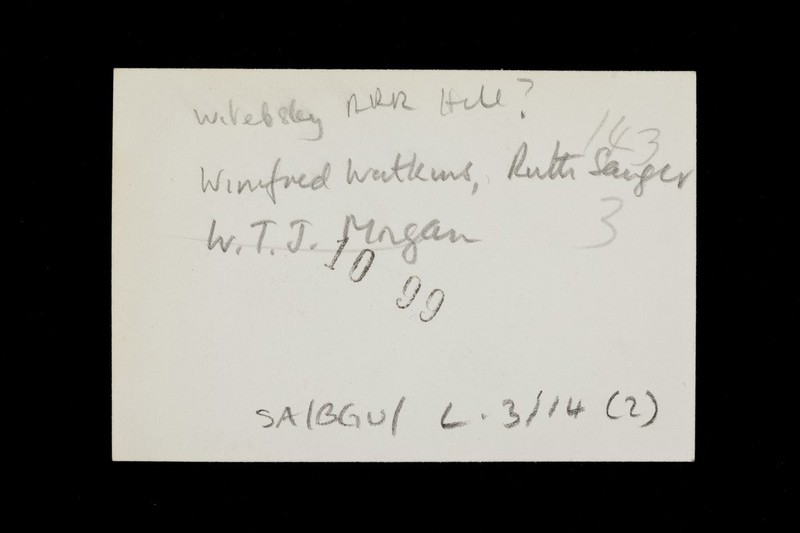 Witebsky RRR Hill?
143
Winifred Watkins, Ruth Sanger
3
W.T.J. Morgan
10 99
SA/BGU/ L.3/14 (2)